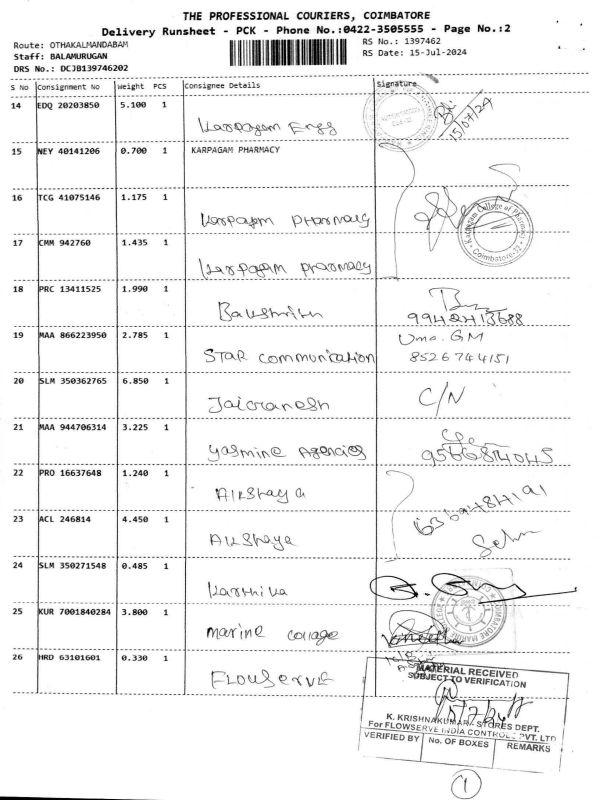 THE PROFESSIONAL COURIERS, COIMBATORE
Delivery Runsheet - PCK - Phone No.:0422-3505555 - Page No.:2
Route: OTHAKALMANDABAM RS No.: 1397462
Staff: BALAMURUGAN RS Date: 15-Jul-2024
DRS No.: DCJB139746202
S No Consignment No Weight PCS Consignee Details Signature
14 EDQ 20203850 5.100 1
Karpagam Engg 15/07/24
15 NEY 40141206 0.700 1 KARPAGAM PHARMACY
16 TCG 41075146 1.175 1
Karpagam pharmacy Karpagam College of Pharmacy Coimbatore-32
17 CMM 942760 1.435 1
Karpagam pharmacy
18 PRC 13411525 1.990 1
9942413688
19 MAA 866223950 2.785 1 Uma. G M
STAR communication 8526744151
20 SLM 350362765 6.850 1 C/N
Jaiganesh
21 MAA 944706314 3.225 1
Yasmine Agencies 9566814045
22 PRO 16637648 1.240 1
Akshaya
23 ACL 246814 4.450 1
Akshaya
24 SLM 350271548 0.485 1
Karthika
25 KUR 7001840284 3.800 1
marine collage
26 HRD 63101601 0.330 1
Flouserve
MATERIAL RECEIVED
SUBJECT TO VERIFICATION
15/7/24
K. KRISHNAKUMAR STORES DEPT.
For FLOWSERVE INDIA CONTROLS PVT. LTD
VERIFIED BY No. OF BOXES REMARKS
1